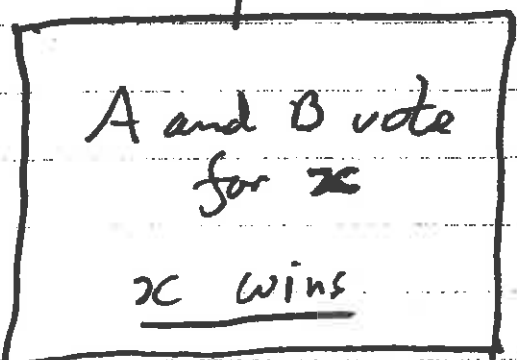 A and B vote
for x
x wins